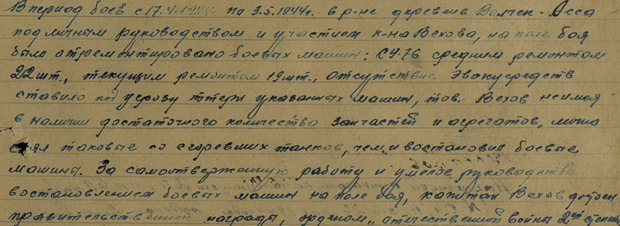 В период боев с 17.4.1944г. по 3.5.1944г. в р-не деревень Волчек - Осса
под личным руководством и участием к-на Вехова, на поле боя
было отремонтировано боевых машин: СУ-76 средним ремонтом
22 шт., текущим ремонтом 19 шт., отсутствие эвакосредств
ставило под угрозу потери указанных машин, тов. Вехов не имея
в наличии достаточного количества запчастей и агрегатов, лично
снял таковые со сгоревших танков, чем и востановил боевые
машины. За самоотверженную работу и умелое руководство
востановлением боевых машин на поле боя, капитан Вехов достоен
правительственной награды, орденом "Отечественной войны 2ой степени